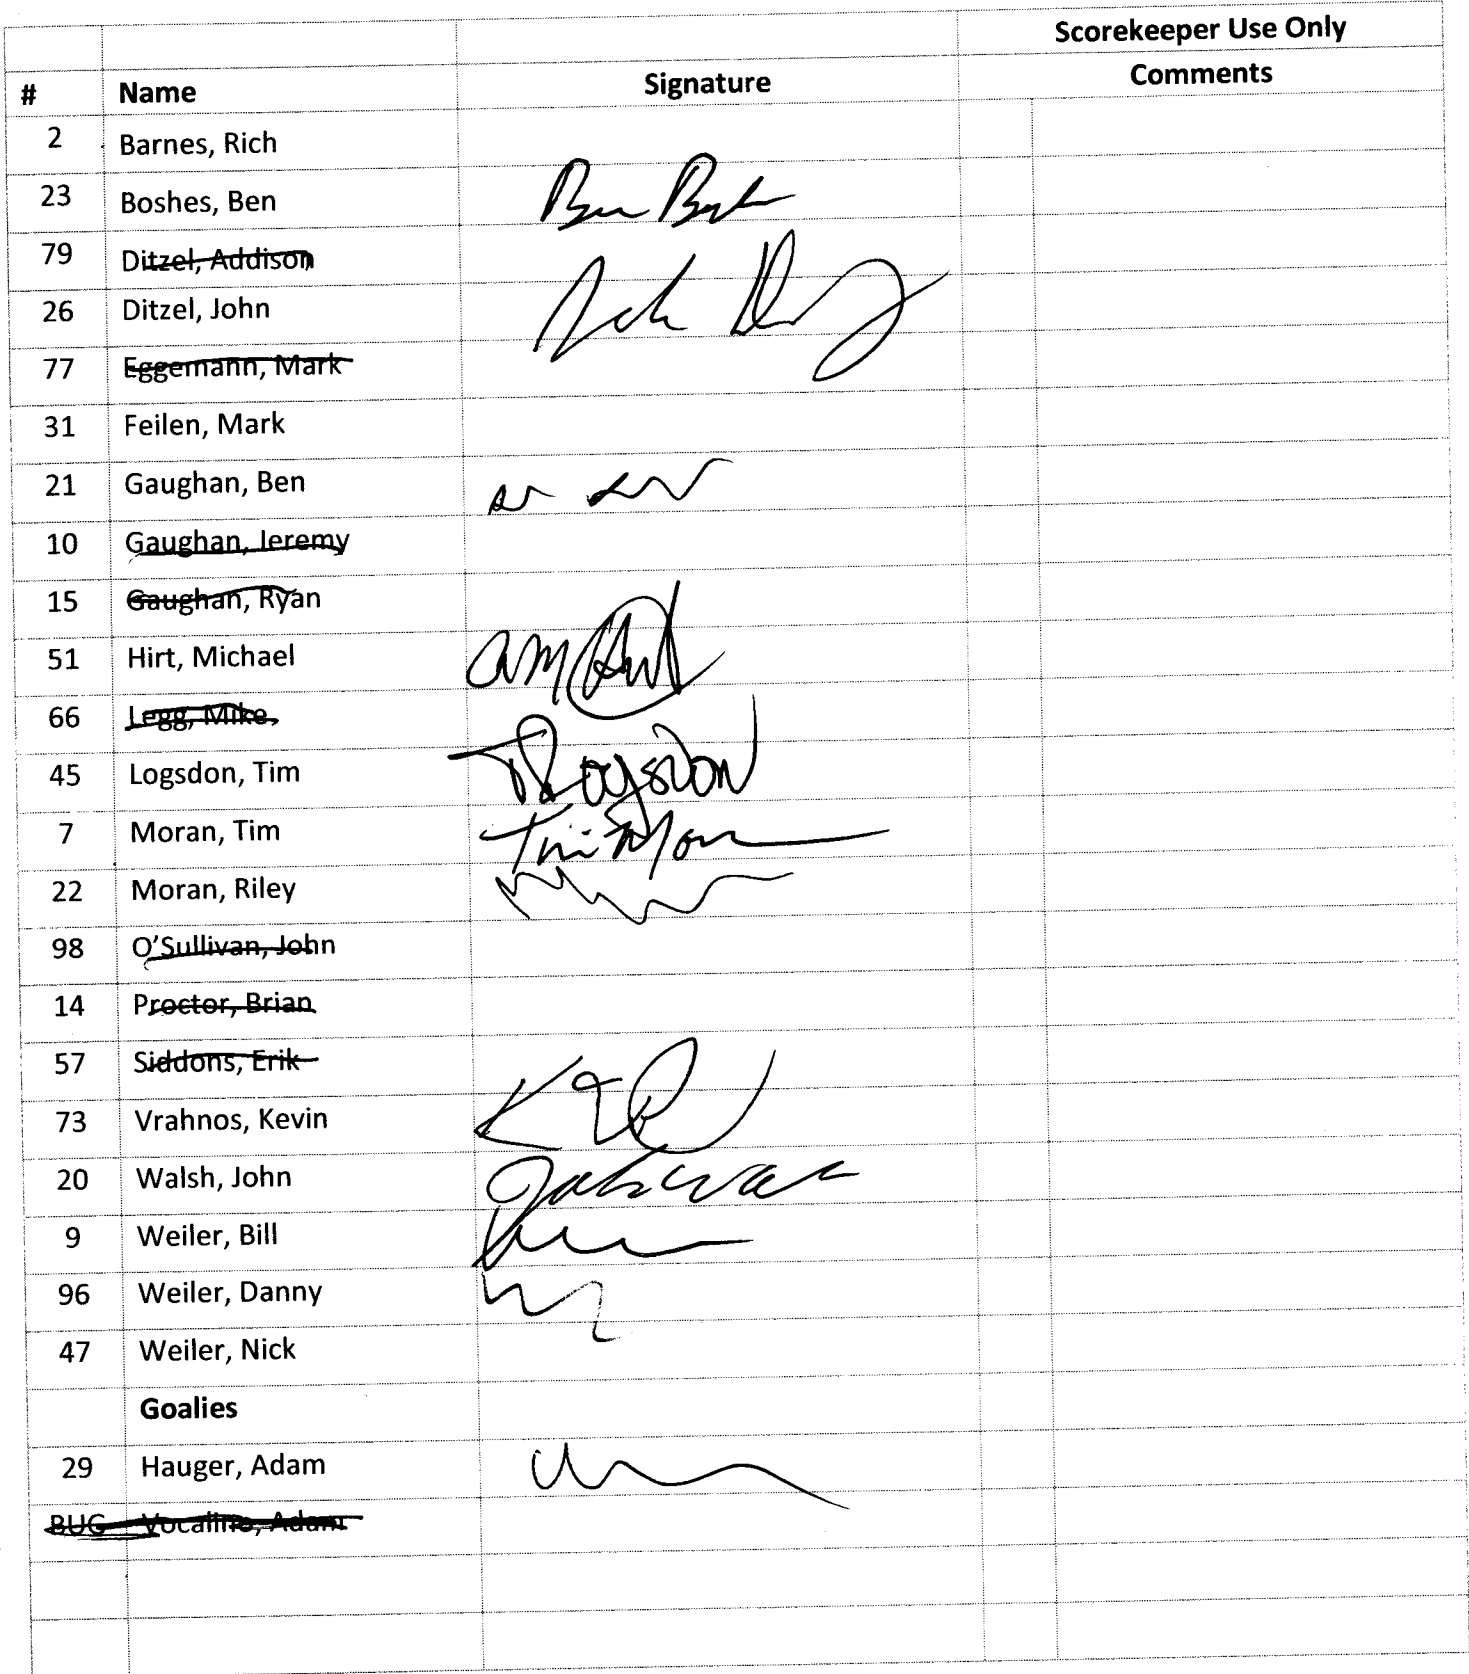 Scorekeeper Use Only
# Name Signature Comments
2 Barnes, Rich
23 Boshes, Ben
79 Ditzel, Addison
26 Ditzel, John
77 Eggemann, Mark
31 Feilen, Mark
21 Gaughan, Ben
10 Gaughan, Jeremy
15 Gaughan, Ryan
51 Hirt, Michael
66 Legg, Mike
45 Logsdon, Tim TLogsdon
7 Moran, Tim Tim Moran
22 Moran, Riley
98 O'Sullivan, John
14 Proctor, Brian
57 Siddons, Erik
73 Vrahnos, Kevin
20 Walsh, John
9 Weiler, Bill
96 Weiler, Danny
47 Weiler, Nick
Goalies
29 Hauger, Adam
BUG Vocalino, Adam